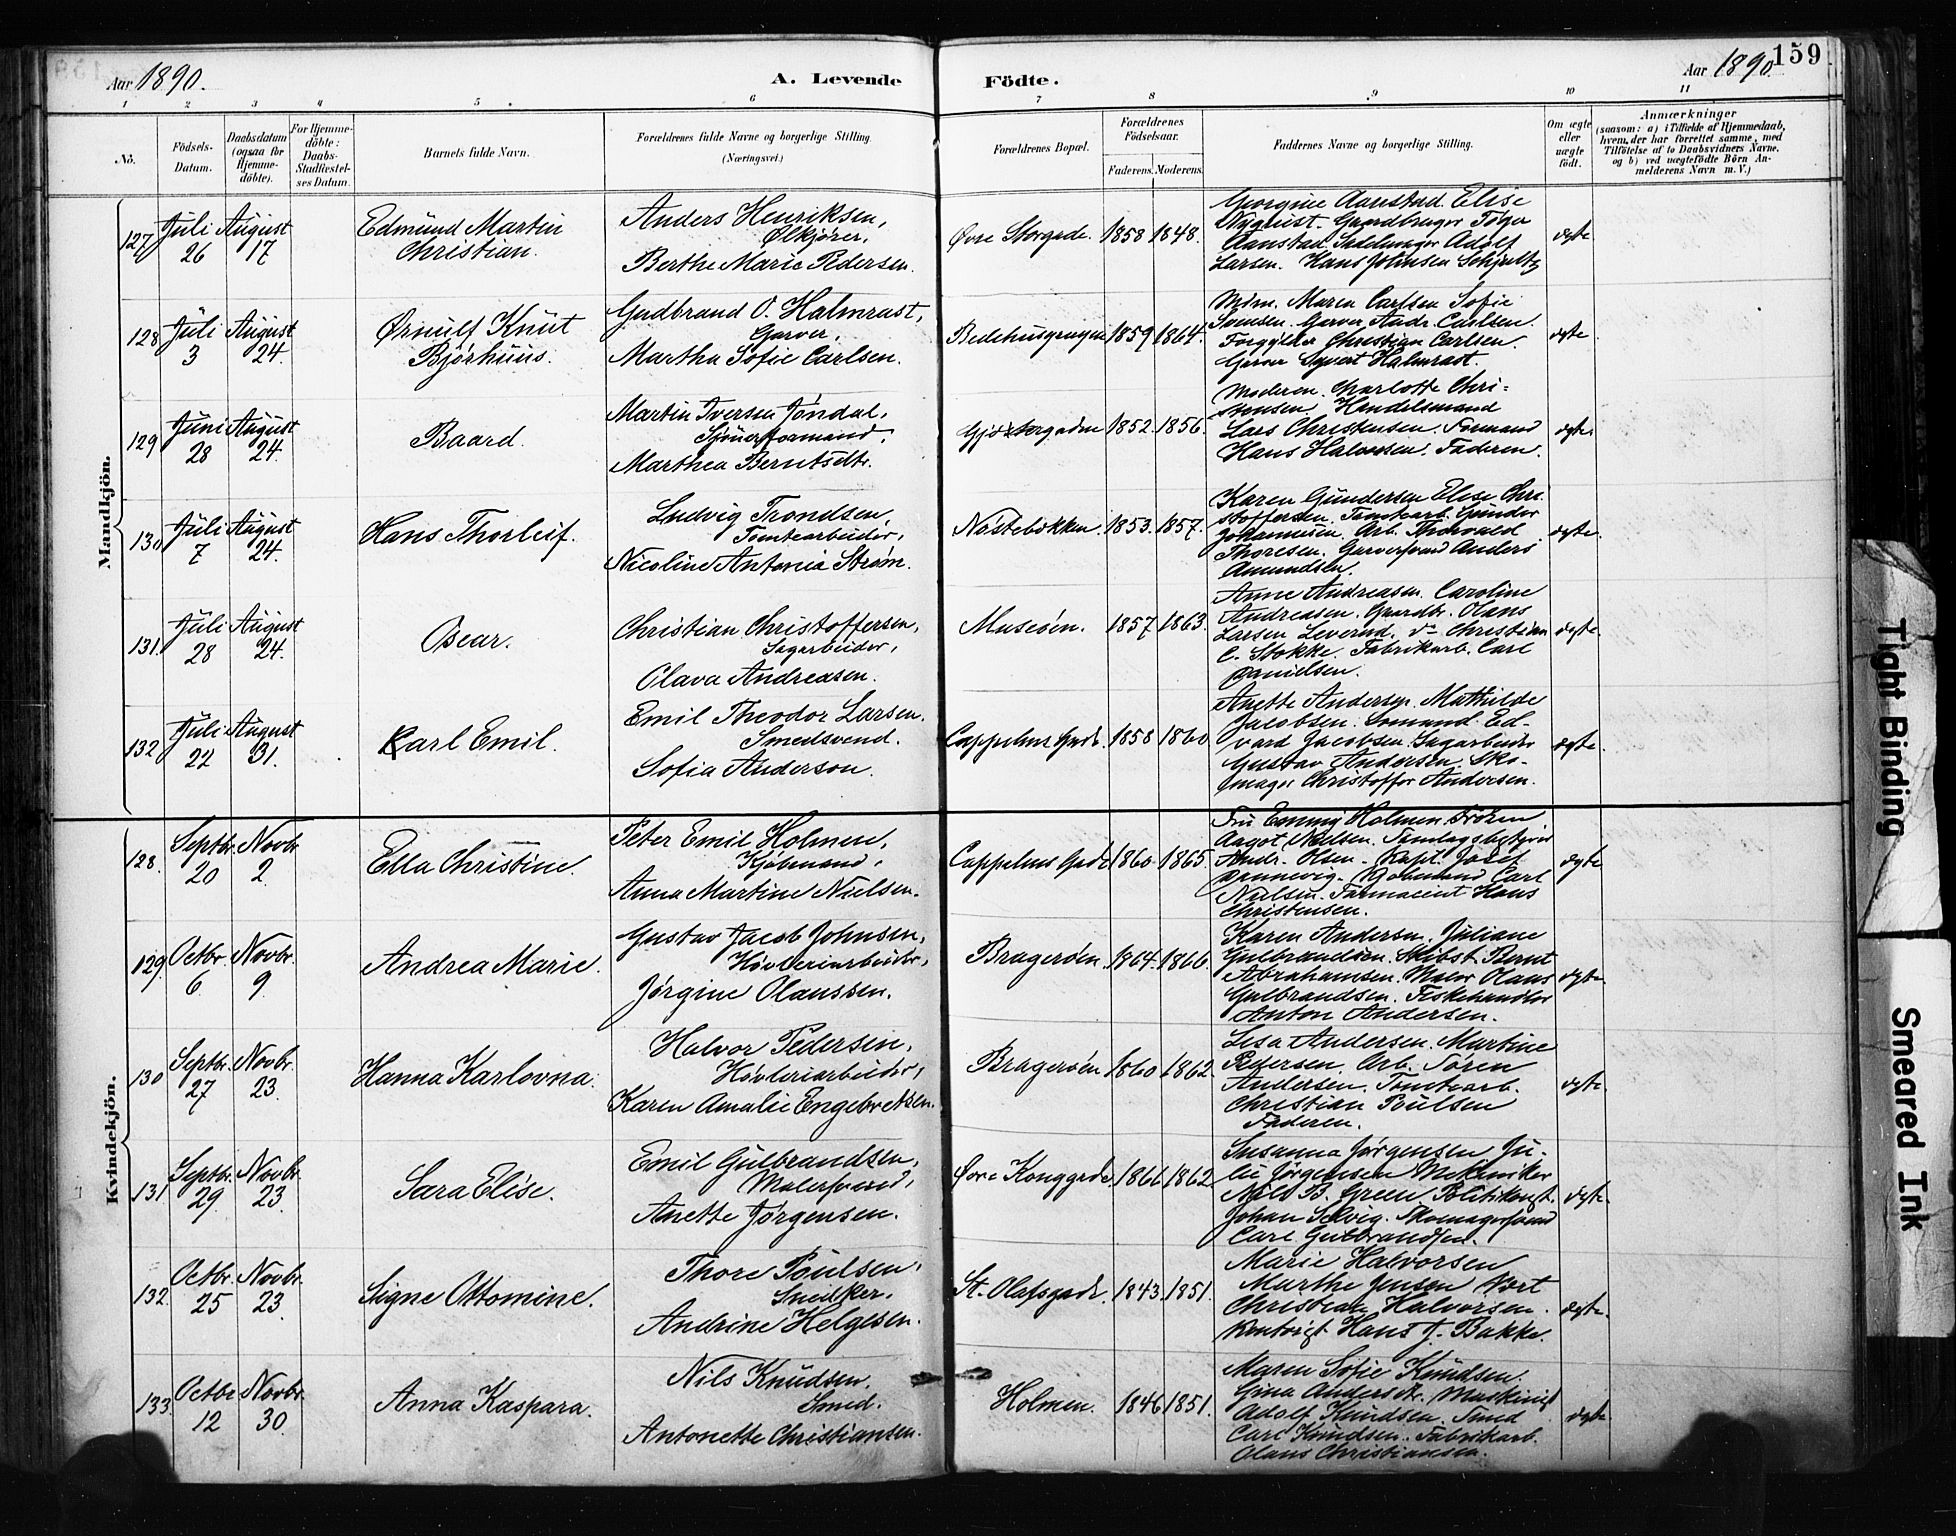 159
Aar 1890.
A. Levende Födte.
Aar 1890
1 2 3 4 5 6 7 8 9 10 11
No.
Födsels-
Datum.
Daabsdatum
(ogsaa for
Hjemme-
döbte).
For Hjemme-
döbte:
Daabs-
Stadfæstel-
ses Datum.
Barnets fulde Navn.
Forældrenes fulde Navne og borgerlige Stilling.
(Næringsvei.)
Forældrenes Bopæl.
Forældrenes
Födselsaar.
Faderens. Moderens.
Faddernes Navne og borgerlige Stilling.
Om ægte
eller
uægte
födt.
Anmærkninger
(saasom: a) i Tilfælde af Hjemmedaab,
hvem, der har forrettet samme, med
Tilföielse af to Daabsvidners Navne,
og b) ved uægtefödte Börn An-
melderens Navn m. V.)
Mandkjön.
127 Juli 26 August 17
Edmund Martin
Christian.
Anders Henriksen,
Ølkjører,
Berthe Marie Pedersen.
Øvre Storgade. 1858 1848.
Georgine Aanstad. Elise
Nyquist. Gaardbruger
Aanstad. Sadelmager Adolf
Larsen. Hans Johnsen
ægte
128 Juli 3 August 24
Ørnulf Knut
Bjørhuus.
Gudbrand O. Halmrast,
Garver,
Martha Sofie Carlsen.
1859 1864.
Mdm. Maren Carlsen Sofie
Svendsen. Garver Andr. Carlsen.
Forgylder Christian Carlsen.
Garver Syvert Halmrast.
ægte
129 Juni 28 August 24.
Baard.
Martin Iversen Jøndal,
Sjouerformand,
Marthea Berntsdtr.
1852. 1856.
Moderen. Charlotte Chri-
stensen. Handelsmand
Lars Christensen. Formand
Hans Halvorsen. Faderen.
ægte.
130 Juli 7 August 24.
Hans Thorleif.
Ludvig Trondsen,
Tomtearbeider,
Nicoline Antonia Strøm.
Nøstebakken. 1853. 1857.
Karen Gundersen Elise Chri-
stoffersen. Tomtearb. Gunder
Johannesen. Arb. Thorvald
Thoresen. Garversvend Anders
Amundsen.
ægte.
131. Juli 28 August 24.
Oscar.
Christian Christoffersen,
Sagarbeider,
Olava Andreasen.
Museøen. 1857 1863.
Anne Andreasen. Caroline
Andreasen. Gaardbr. Olaus
Larsen Leverud. do Christian
C. Stokke. Fabrikarb. Carl
Danielsen.
ægte.
132 Juli 22 August 31.
Karl Emil.
Emil Theodor Larsen.
Smedsvend.
Sofia Anderson.
Cappelens Gade. 1858 1860
Anette Andersen. Mathilde
Jacobsen. Sømand Ed-
vard Jacobsen. Sagarbeider
Gustav Andersen. Sko-
mager Christoffer Andersen.
ægte.
Kvindekjön.
128. Septbr. 20 Novbr 2.
Ella Christine.
Peter Emil Holmen,
Kjøbmand,
Anna Martine Nielsen.
Cappelens Gade 1860. 1865.
Fru Emmy Holmen. Frøken
Aagot Nielsen.
Andr. Olsen. Kapt. Josef
Kjøbmand Carl
Nielsen. Farmaceut Hans
Christensen.
ægte
129 Octbr. 6. Novbr. 9.
Andrea Marie.
Gustav Jacob Johnsen,
Høvleriarbeider,
Jørgine Olaussen.
Bragerøen. 1864. 1866.
Karen Andersen. Juliane
Gulbrandsen. Skibst. Bernt
Abrahamsen. Maler Olaus
Gulbrandsen. Fiskehandler
Anton Andersen.
ægte
130 Septbr. 27 Novbr. 23.
Hanna Karlovna.
Halvor Pedersen,
Høvleriarbeider,
Karen Amalie Engebretsen.
Bragerøen 1860. 1862.
Lisa Andersen. Martine
Pedersen. Arb. Søren
Andersen. Tomtearb.
Christian Poulsen
Faderen.
ægte
131 Septbr. 29 Novbr. 23.
Sara Elise.
Emil Gulbrandsen,
Malersvend,
Anette Jørgensen.
Øvre Konggade. 1866 1862
Susanna Jørgensen Ju-
lie Jørgensen Mekaniker
Nils B. Green. Politikonst.
Johan Selvig. Skomagersvend
Carl Gulbrandsen.
ægte.
132. Octbr. 25 Novbr. 23
Signe Ottomine.
Thore Poulsen,
Snedker,
Andrine Helgesen.
St. Olafsgade. 1843. 1851.
Marie Halvorsen
Marthe Jensen
Christian Halvorsen.
Kontorist Hans J. Bakke.
ægte.
133. Octbr 12 Novbr. 30.
Anna Kaspara.
Nils Knudsen.
Smed.
Antonette Christiansen.
Holmen. 1846 1851.
Maren Sofie Knudsen.
Gina Andersdtr. Maskinist
Adolf Knudsen. Smed
Carl Knudsen. Fabrikarb.
Olaus Christiansen.
ægte.
Tight Binding
Smeared Ink